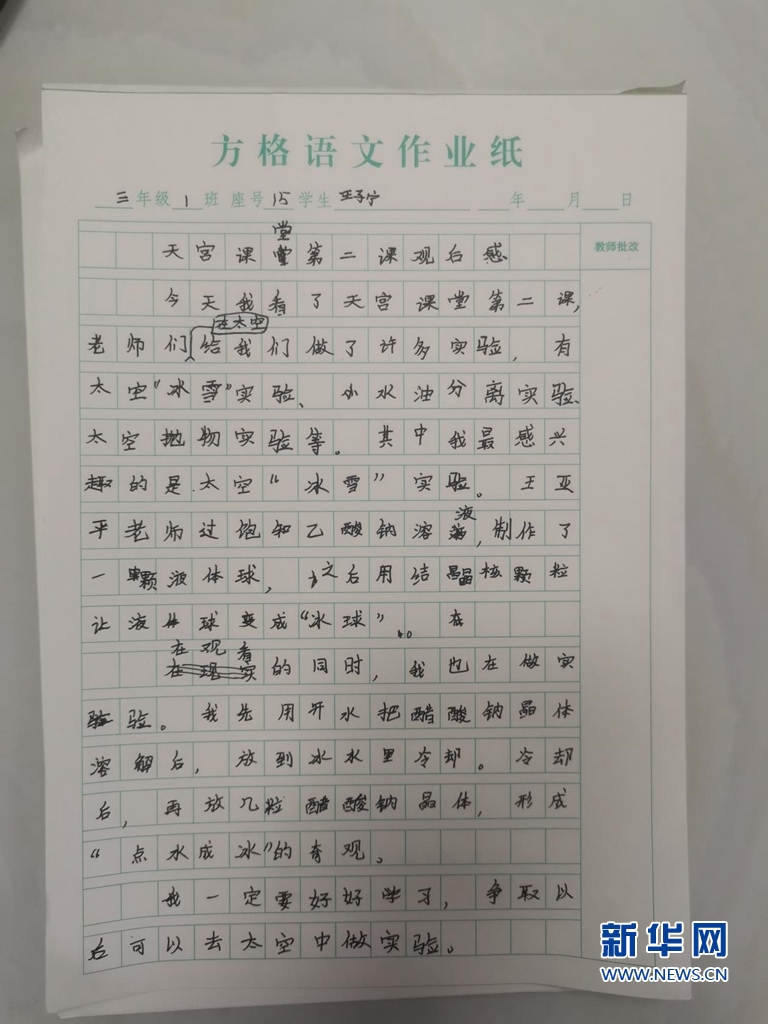 方格语文作业纸
三年级1班 座号15学生王子宁 年 月 日
教师批改
堂
天宫课堂第二课观后感
今天我看了天宫课堂第二课,
在太空
老师们给我们做了许多实验，有
太空“冰雪”实验、小水油分离实验、
太空抛物实验等。其中我最感兴
趣的是太空“冰雪”实验。王亚
液
平老师过饱知乙酸钠溶,制作了
一颗液体球，之后用结晶核颗粒
让液体球变成“冰球”。在
在观看
在现实的同时，我也在做实
验验。我先用开水把醋酸钠晶体
溶解后，放到冰水里冷却。冷却
后，再放几粒醋酸钠晶体，形成
“点水成冰”的奇观。
我一定要好好学习，争取以
后可以去太空中做实验。
新华网
WWW.NEWS.CN